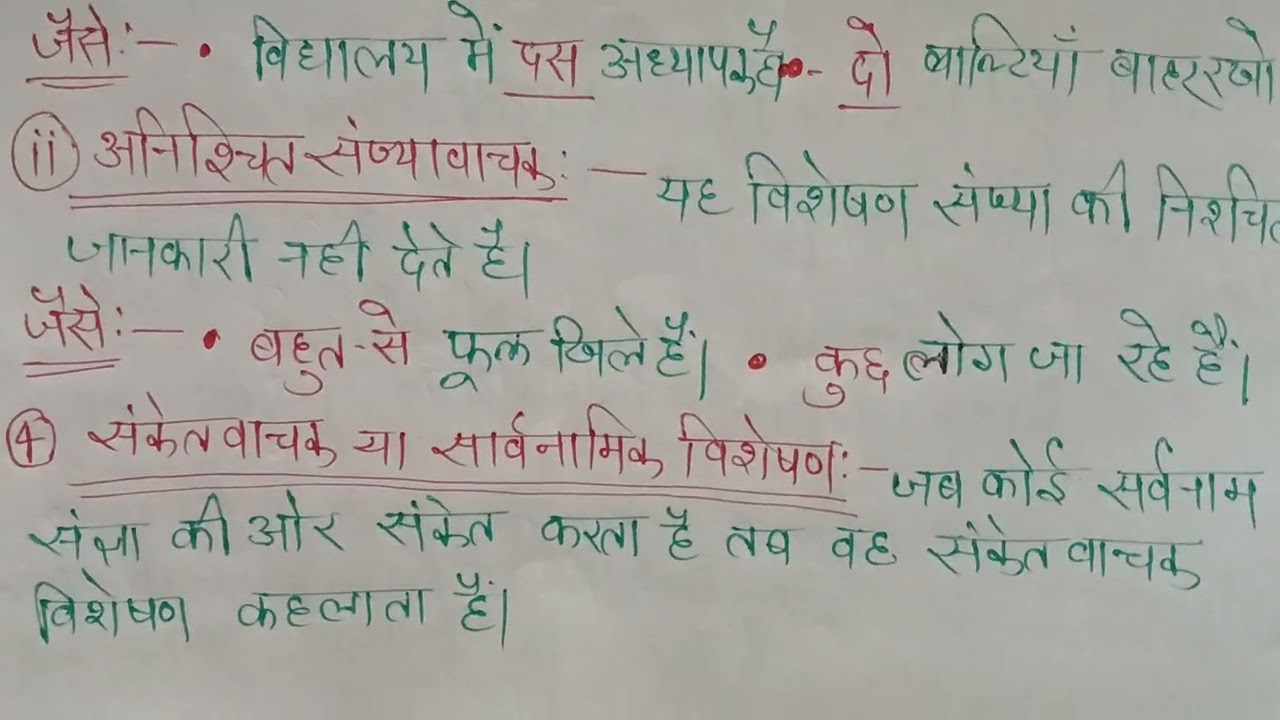 जैसे:- • विद्यालय में दस अध्यापक है • - दो बाल्टियाँ बाहर रखो
(ii) अनिश्चित संख्यावाचक: - यह विशेषण संख्या की निश्चित
जानकारी नही देते है।
जैसे:- • बहुत-से फूल खिले हैं। • कुछ लोग जा रहे हैं।
(4) संकेतवाचक या सार्वनामिक विशेषण:- जब कोई सर्वनाम
संज्ञा की ओर संकेत करता है तब वह संकेतवाचक
विशेषण कहलाता हैं।